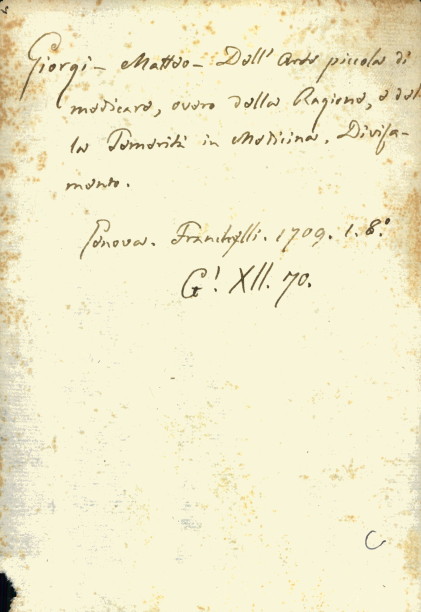 Giorgi - Matteo - Dell' Arte piccola di
medicare, overo della Ragione, e del-
la Temerità in Medicina. Divisa-
mento.
Genova. Franchelli. 1709. 1. 8.°
G! XII. 70.
C